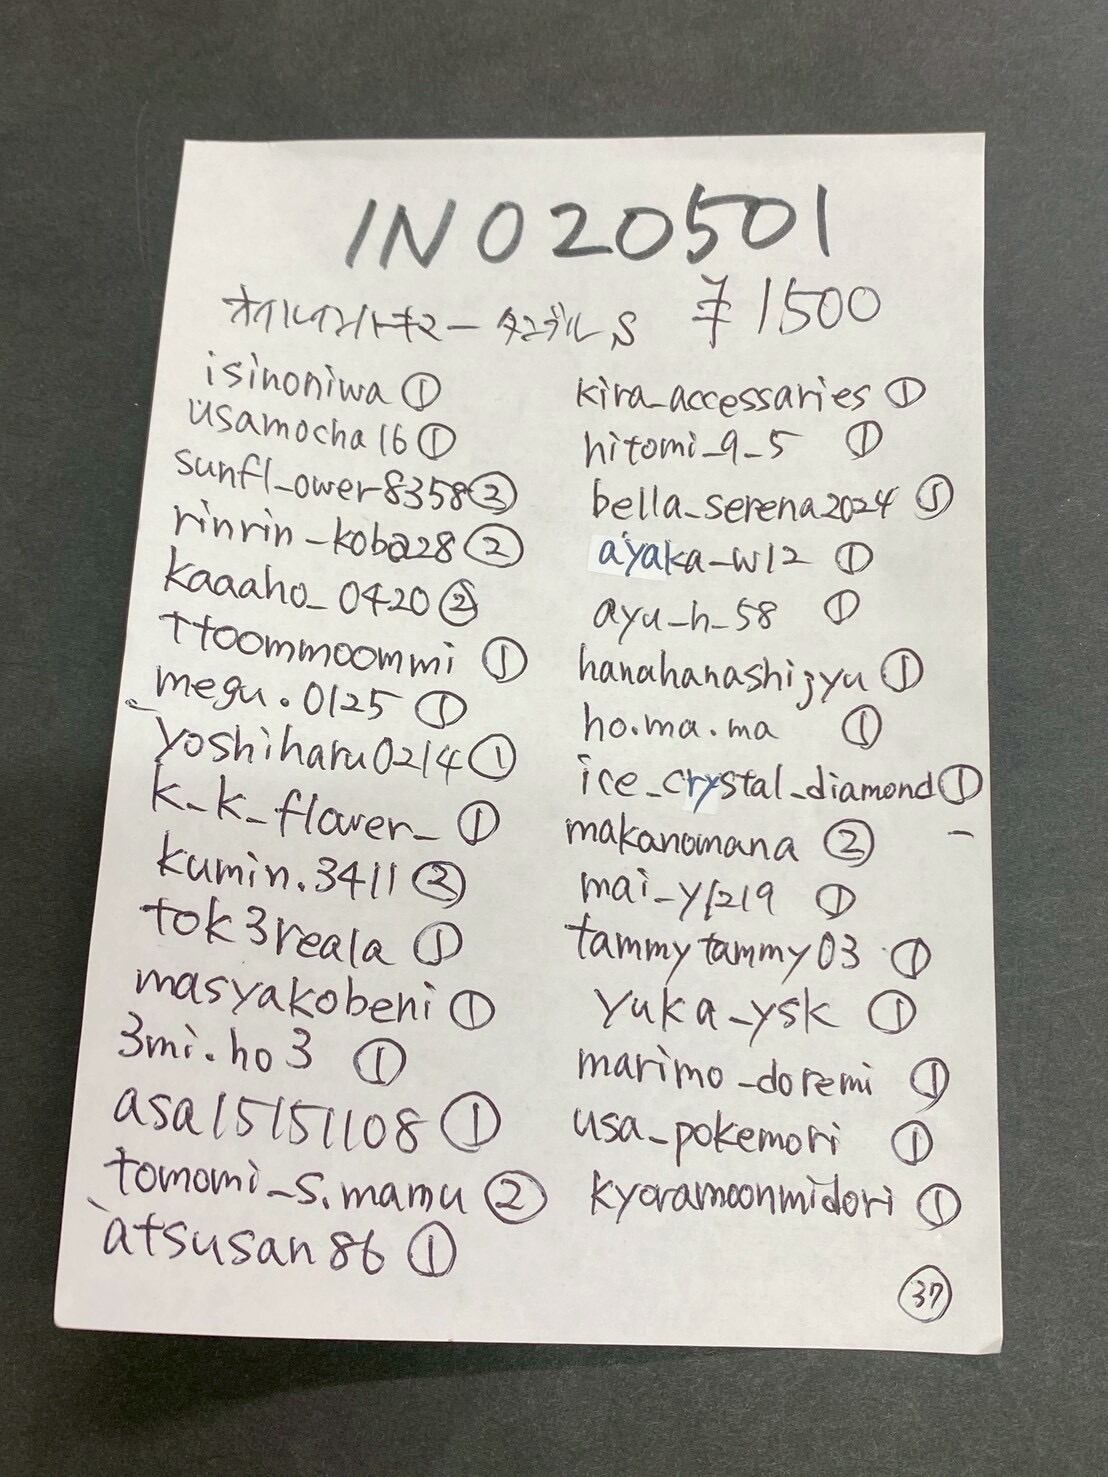 INO20501
オイルインハーキマータンブル S ¥1500
isinoniwa ①
usamocha16 ①
sunfl_ower8358 ②
rinrin_koba28 ②
kaaaho_0420 ②
ttoommoommi ①
megu.0125 ①
yoshiharu0214 ①
k_k_flower_ ①
kumin.3411 ②
tok3reala ①
masyakobeni ①
3mi.ho3 ①
asa15151108 ①
tomomi_s.mamu ②
atsusan86 ①
kira_accessaries ①
hitomi_9_5 ①
bella_serena2024 ①
ayaka_w12 ①
ayu_h_58 ①
hanahanashijyu ①
ho.ma.ma ①
ice_crystal_diamond ①
makanomana ②
mai_y1219 ①
tammytammy03 ①
yuka_ysk ①
marimo_doremi ①
usa_pokemori ①
kyoramoonmidori ①
㊲